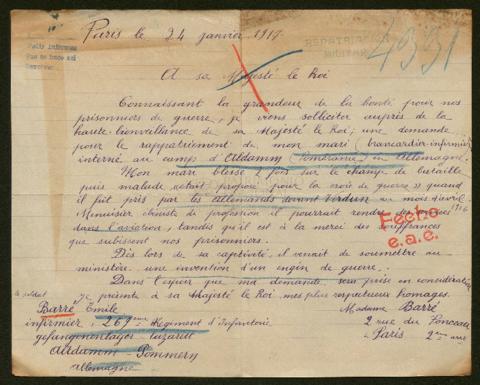 Paris le 24 janvier 1917.
REPATRIACION
MILITAR
4331
A sa Majesté le Roi
Connaissant la grandeur de la bonté pour nos
prisonniers de guerre, je viens solliciter auprès de la
haute bienveillance de sa Majesté le Roi; une demande
pour le rappatriement de mon mari (brancardier-infirmier
interné au camp d'Altdamm (Poméranie) en Allemagne.
Mon mari blessé 2 fois sur le champ de bataille
puis malade était proposé pour la croix de guerre quand
il fut pris par les Allemands devant Verdun au mois d'avril
1916
Menuisier ébéniste de profession il pourrait rendre des
dans l'aviation, tandis qu'il est à la merci des souffrances
que subissent nos prisonniers.
Fecho
e.a.e.
Dès lors de sa captivité, il venait de soumettre au
ministère une invention d'un engin de guerre.
Dans l'espoir que ma demande sera prise en considération
je présente à sa Majesté le Roi, mes plus respectueux homages.
le soldat
Barré Emile
infirmier, 267ème Régiment d'Infanterie
gefangenenlager lazarett
Altdamm - Pommern
Allemagne
Madame Barré
2 rue du Ponceau
Paris 2ème arr